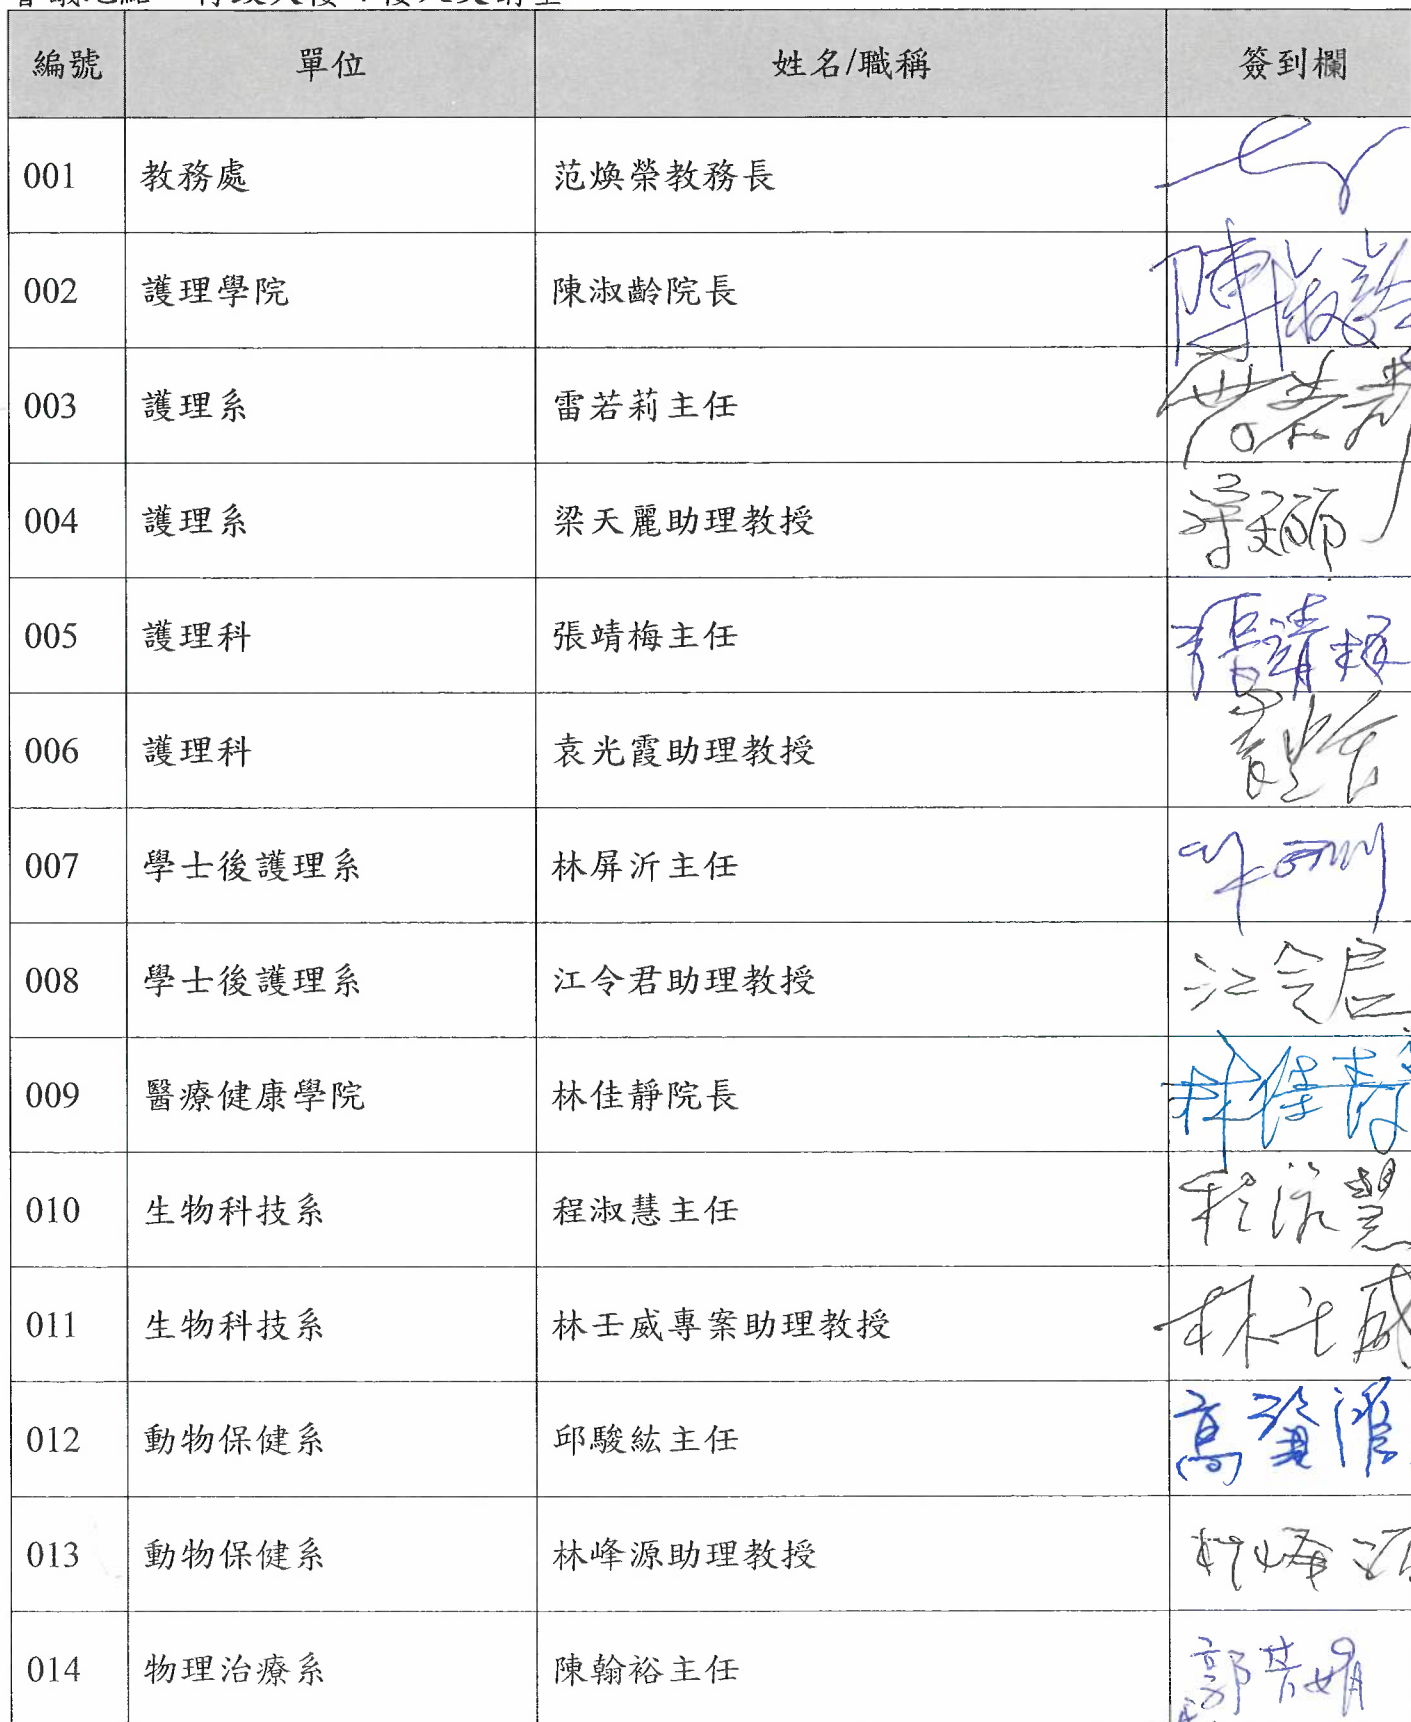 編號 單位 姓名/職稱 簽到欄
001 教務處 范煥榮教務長
002 護理學院 陳淑齡院長 陳淑齡
003 護理系 雷若莉主任 雷若莉
004 護理系 梁天麗助理教授 梁天麗
005 護理科 張靖梅主任 張靖梅
006 護理科 袁光霞助理教授
007 學士後護理系 林屏沂主任
008 學士後護理系 江令君助理教授 江令君
009 醫療健康學院 林佳靜院長 林佳靜
010 生物科技系 程淑慧主任 程淑慧
011 生物科技系 林壬威專案助理教授 林壬威
012 動物保健系 邱駿紘主任
013 動物保健系 林峰源助理教授 林峰源
014 物理治療系 陳翰裕主任